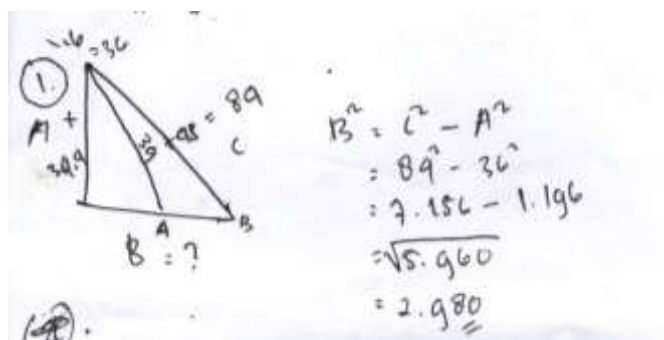 1.6 = 36
1.
A +
34.9
39
= 89
C
A
B
B = ?
B² = C² - A²
= 89² - 36²
= 7.156 - 1.196
= √5.960
= 2.980